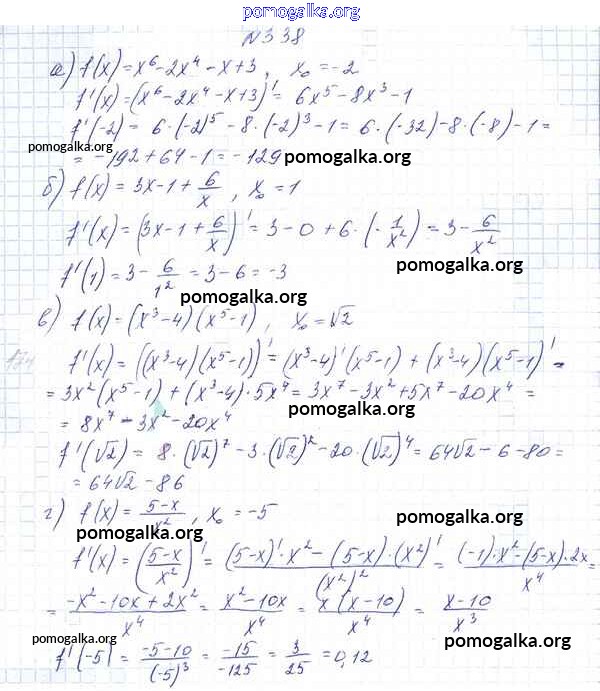 pomogalka.org
№338
а) f(x)=x⁶-2x⁴-x+3, x₀=-2
f'(x)=(x⁶-2x⁴-x+3)'= 6x⁵-8x³-1
f'(-2)= 6·(-2)⁵-8·(-2)³-1= 6·(-32)-8·(-8)-1=
pomogalka.org
= -192+64-1=-129
pomogalka.org
б) f(x)=3x-1+6/x, x₀=1
f'(x)=(3x-1+6/x)'=3-0+6·(-1/x²)=3-6/x²
pomogalka.org
f'(1)=3-6/1²=3-6=-3
pomogalka.org
в) f(x)=(x³-4)(x⁵-1), x₀=√2
f'(x)=((x³-4)(x⁵-1))'=(x³-4)'(x⁵-1)+(x³-4)(x⁵-1)'=
=3x²(x⁵-1)+(x³-4)·5x⁴=3x⁷-3x²+5x⁷-20x⁴=
pomogalka.org
=8x⁷-3x²-20x⁴
f'(√2)= 8·(√2)⁷-3·(√2)²-20·(√2)⁴=64√2-6-80=
=64√2-86
г) f(x)=(5-x)/x², x₀=-5
pomogalka.org
pomogalka.org
f'(x)=((5-x)/x²)'=((5-x)'·x²-(5-x)·(x²)')/(x²)²=((-1)·x²-(5-x)·2x)/x⁴=
=(-x²-10x+2x²)/x⁴=(x²-10x)/x⁴=x(x-10)/x⁴=(x-10)/x³
pomogalka.org
pomogalka.org
f'(-5)=(-5-10)/(-5)³=-15/-125=3/25=0,12